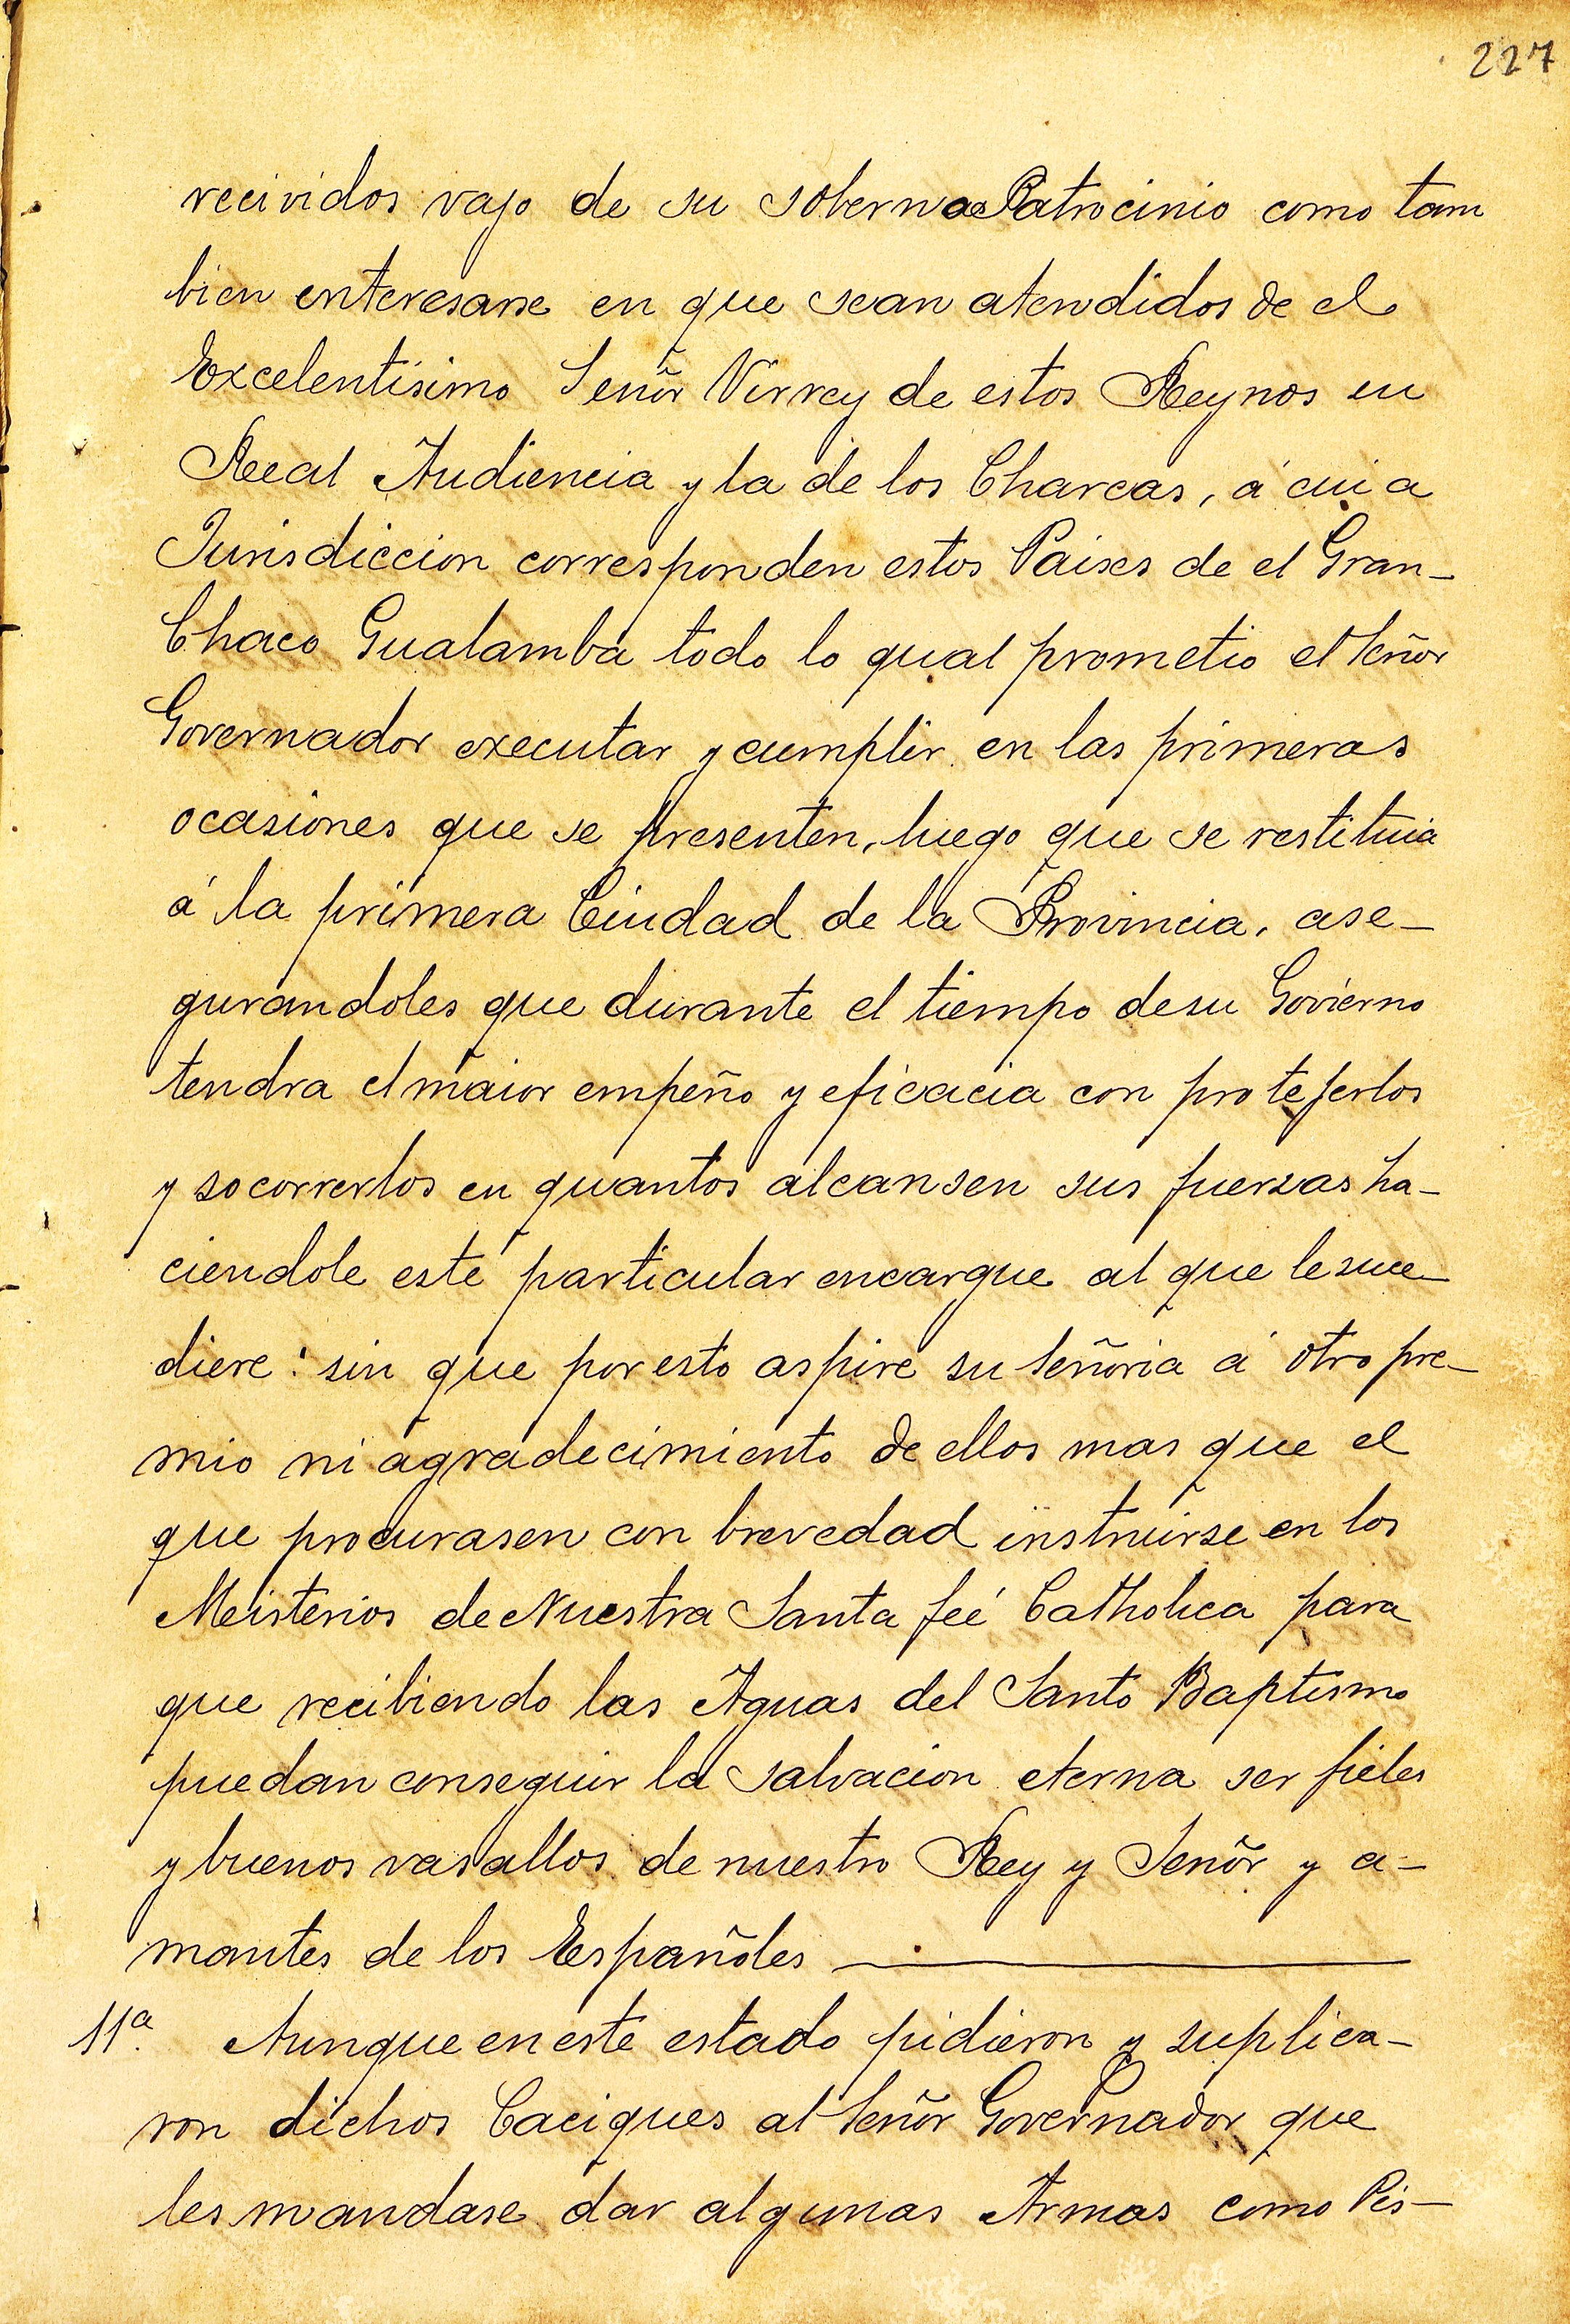 227
recividos vajo de su soberna Patrocinio como tam
bien enteresarse en que sean atendidos de el
Excelentisimo Señor Virrey de estos Reynos su
Real Audiencia y la de los Charcas, á cuia
Jurisdiccion corresponden estos Paises de el Gran-
Chaco Gualamba todo lo qual prometio el Señor
Governador executar y cumplir en las primeras
ocasiones que se presenten, luego que se restituia
á la primera Ciudad de la Provincia, ase-
gurandoles que durante el tiempo de su Govierno
tendra el maior empeño y eficacia con protejerlos
y socorrerlos en quantos alcansen sus fuerzas ha-
ciendole este particular encargue al que le suce-
diere: sin que por esto aspire su Señoria á otro pre-
mio ni agradecimiento de ellos mas que el
que procurasen con brevedad instruirse en los
Meisterios de Nuestra Santa feé Catholica para
que recibiendo las Aguas del Santo Baptismo
puedan conseguir la salvacion eterna ser fieles
y buenos vasallos de nuestro Rey y Señor y a-
mantes de los Españoles
11ª. Aunque en este estado pidieron y suplica-
ron dichos Caciques al Señor Governador que
les mandase dar algunas Armas como Pis-